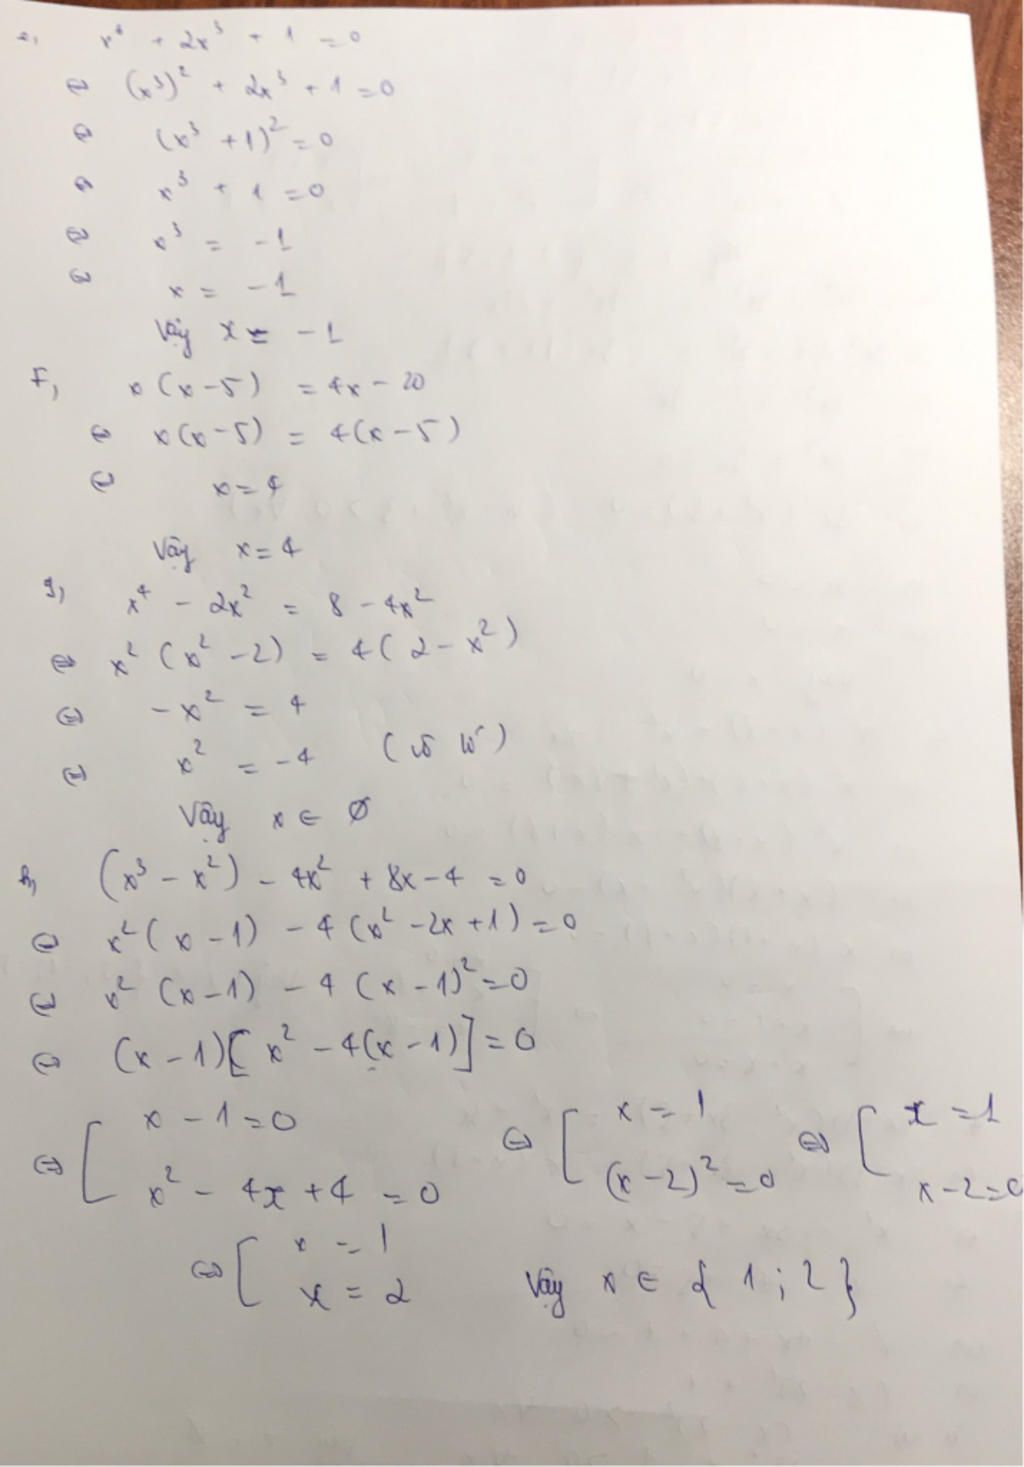 e, x⁶ + 2x³ + 1 = 0
⇔ (x³)² + 2x³ + 1 = 0
⇔ (x³ + 1)² = 0
⇔ x³ + 1 = 0
⇔ x³ = -1
⇔ x = -1
Vậy x = -1
F, x(x-5) = 4x - 20
⇔ x(x-5) = 4(x-5)
⇔ x = 4
Vậy x = 4
g, x⁴ - 2x² = 8 - 4x²
⇔ x²(x² - 2) = 4(2 - x²)
⇔ -x² = 4
⇔ x² = -4 (vô lí)
Vậy x ∈ ∅
h, (x³ - x²) - 4x² + 8x - 4 = 0
⇔ x²(x-1) - 4(x² - 2x + 1) = 0
⇔ x²(x-1) - 4(x-1)² = 0
⇔ (x-1)[x² - 4(x-1)] = 0
⇔ [ x - 1 = 0 ⇔ [ x = 1 ⇔ [ x = 1
x² - 4x + 4 = 0 (x-2)² = 0 x-2=0
⇔ [ x = 1
x = 2 Vậy x ∈ {1; 2}